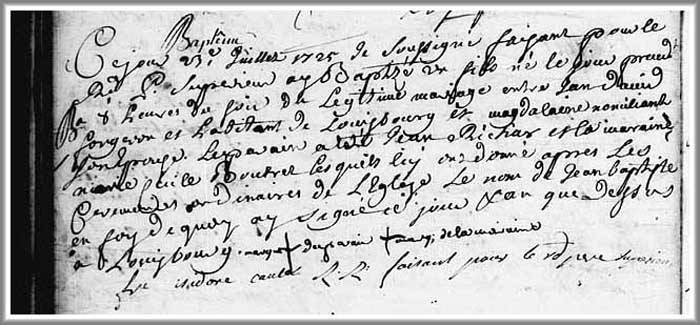 Baptême
Ce jour 23e Juillet 1725 Je Soussigné faisant pour le
Rd P. Superieur ay Baptizé un fils né le jour preced
a 8 heures du soir du Legitime mariage entre Jan David
forgeron et habitant de Louisbourg et magdalaine
Son Epouse. Le parain a eté Jean Richar et la maraine
marie Boutret lesquels luy ont donné apres Les
Ceremonies ordinaires de l'Eglise Le nom de Jean baptiste
en foy de quoy ay signé ce jour & an que Dessus
à Louisbourg. marque du parain marq. de la maraine
fr isidore caulet R. R. faisant pour le rd pere superieur